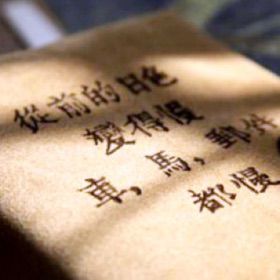 從前的日色
變得慢
車，馬，郵件
都慢